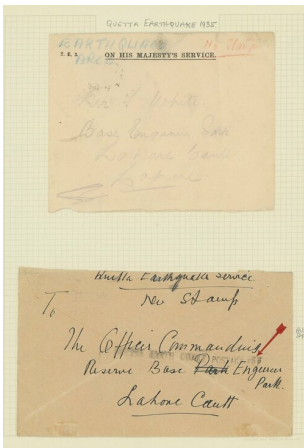 QUETTA EARTHQUAKE 1935
EARTHQUAKE
No Stamp
ON HIS MAJESTY'S SERVICE.
Base Engineer Park
Lahore Cantt
Lahore
Quetta Earthquake Service
No Stamp
To
The Officer Commanding
Reserve Base Park Engineer
Park.
Lahore Cantt